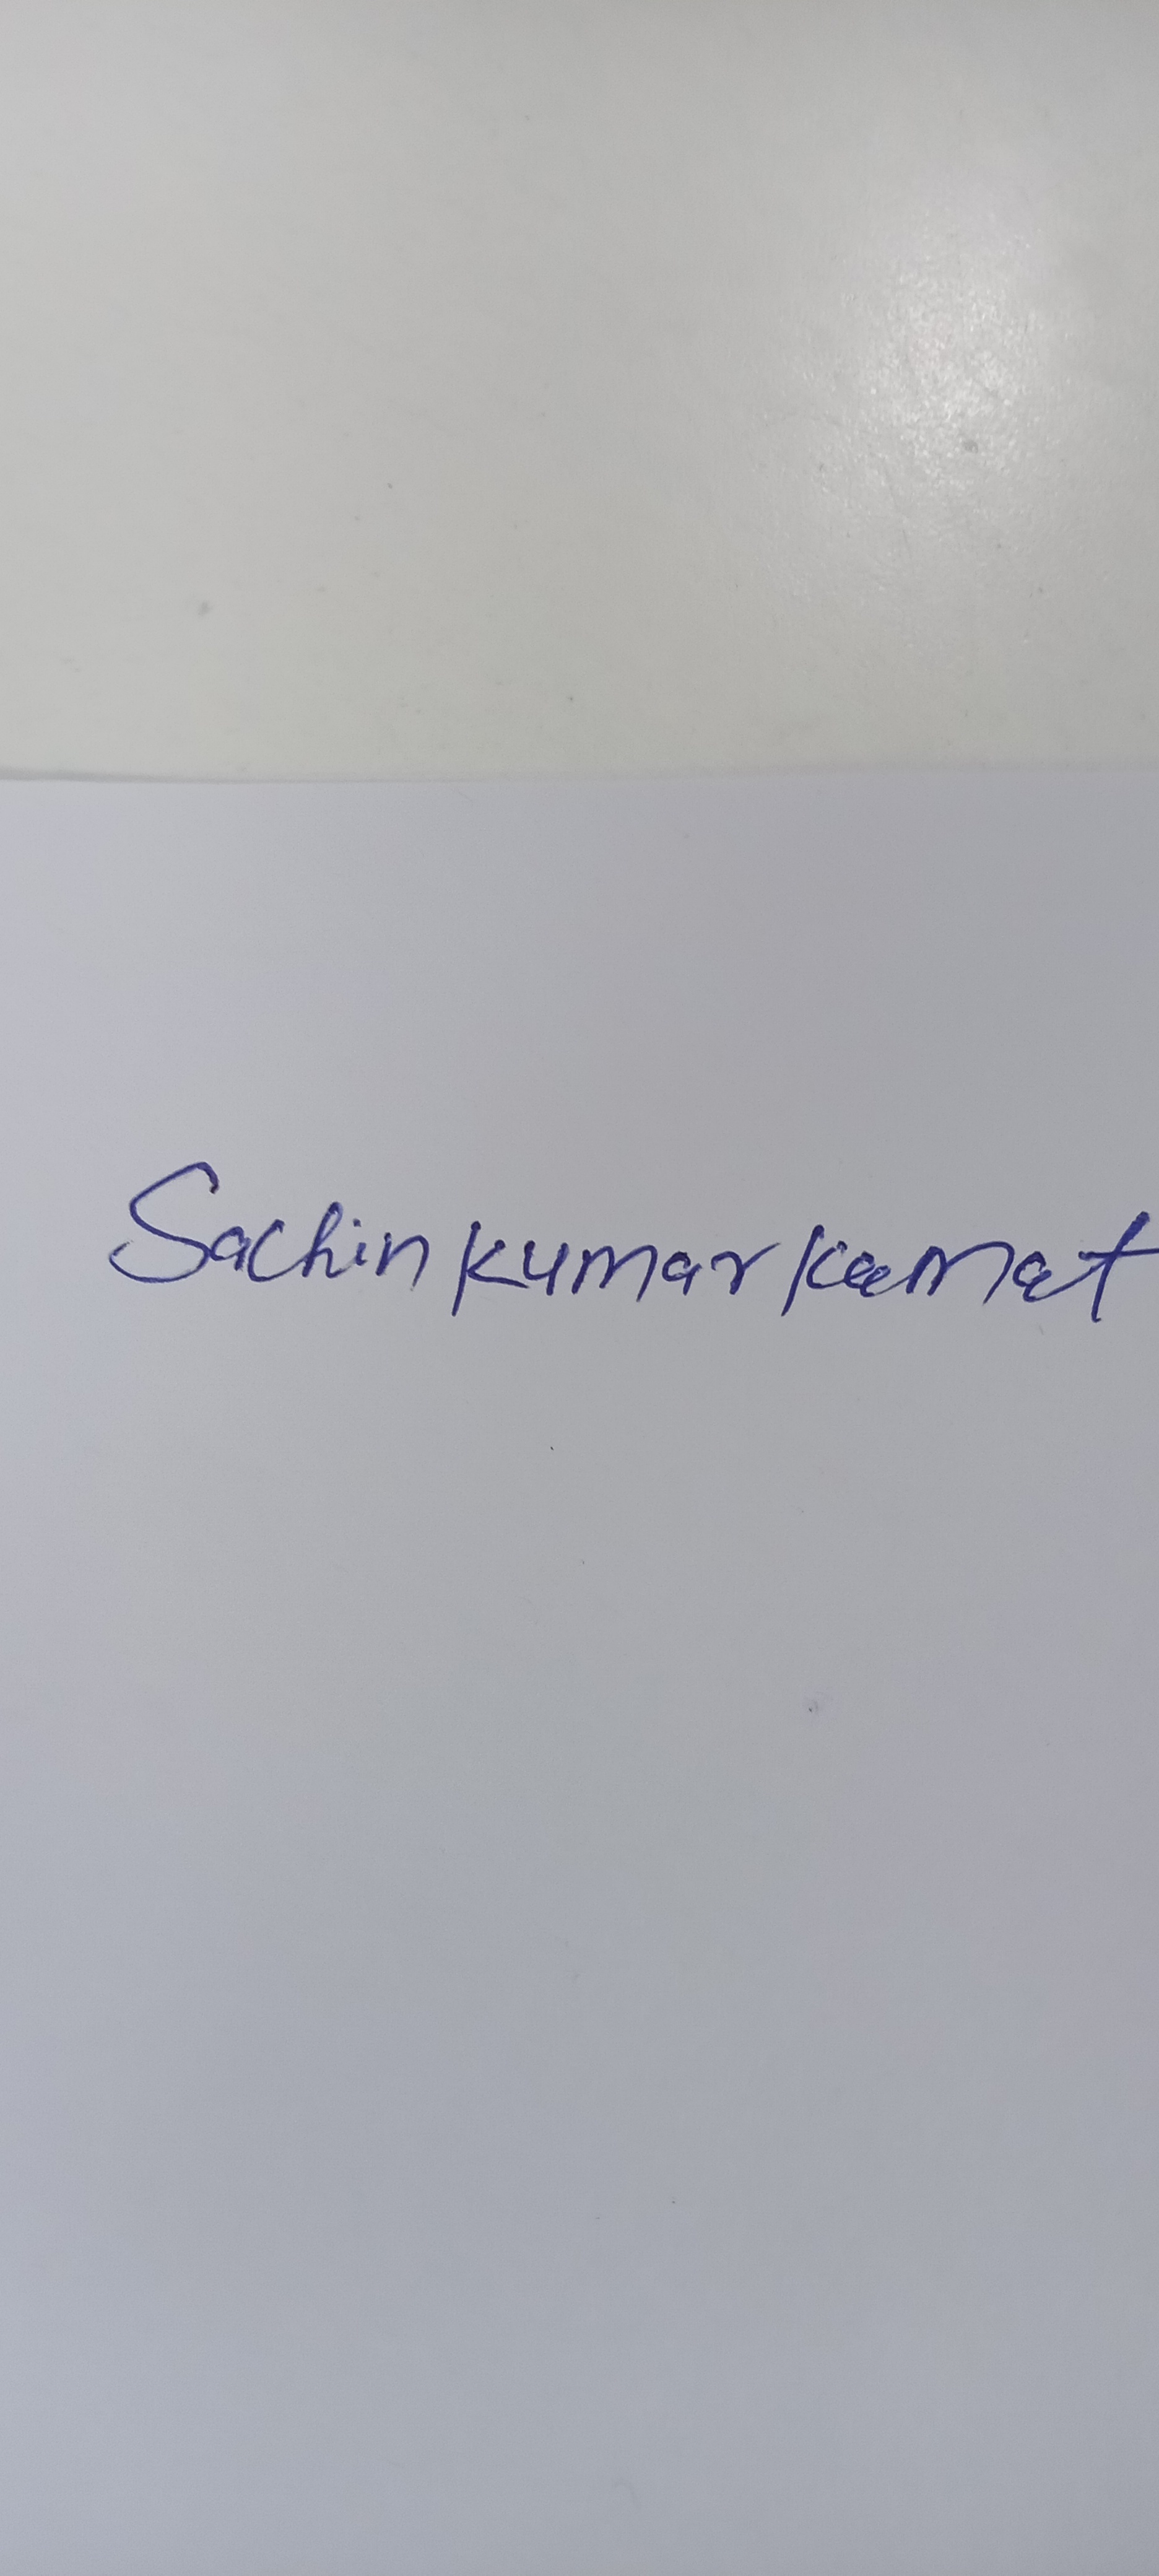 Sachin kumar kamat